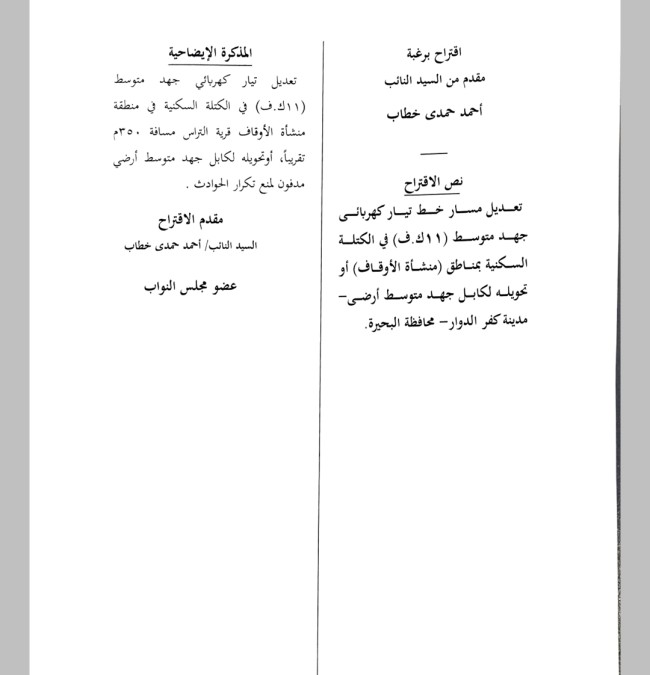 اقتراح برغبة
مقدم من السيد النائب
أحمد حمدى خطاب
نص الاقتراح
تعديل مسار خط تيار كهربائى
جهد متوسط (١١ك.ف) في الكتلة
السكنية بمناطق (منشأة الأوقاف) أو
تحويله لكابل جهد متوسط أرضى–
مدينة كفر الدوار– محافظة البحيرة.
المذكرة الإيضاحية
تعديل تيار كهربائي جهد متوسط
(١١ك.ف) في الكتلة السكنية في منطقة
منشأة الأوقاف قرية التراس مسافة ٣٥٠م
تقريباً، أوتحويله لكابل جهد متوسط أرضي
مدفون لمنع تكرار الحوادث .
مقدم الاقتراح
السيد النائب/ أحمد حمدى خطاب
عضو مجلس النواب